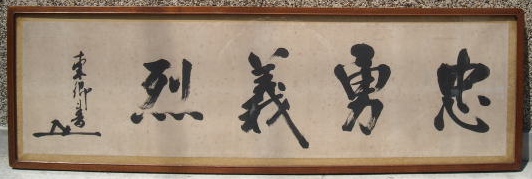 忠勇義烈
東郷書